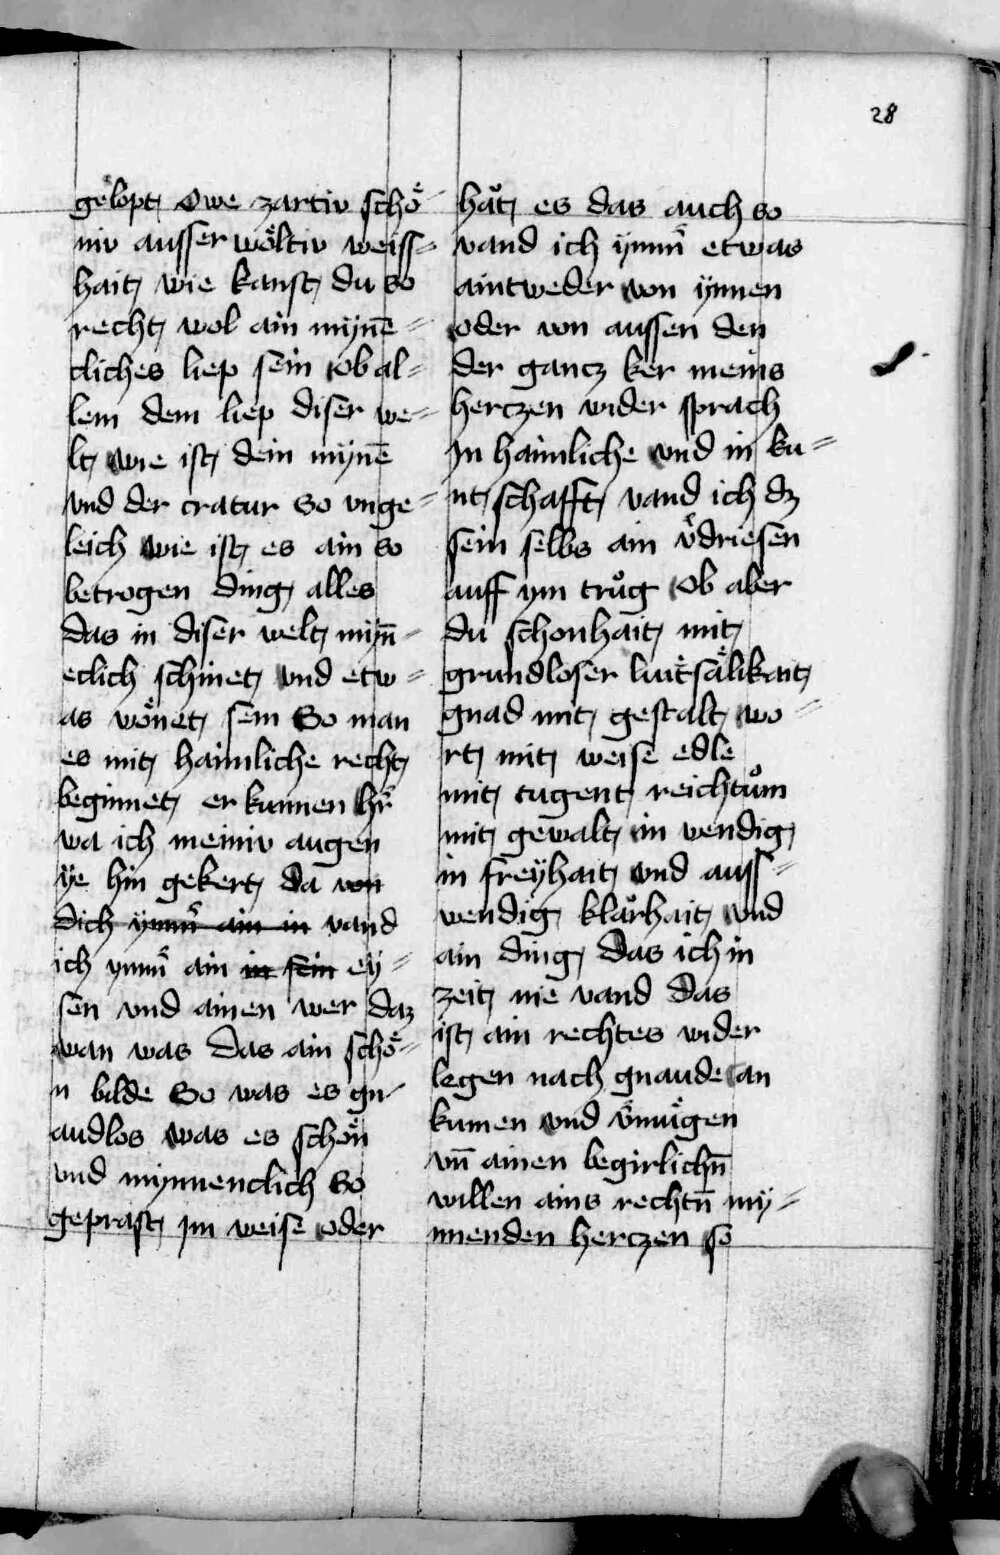 28
gelopt Owe zartiv schoͤ
niv ausser woͤltiv weiss=
hait wie kanst du so
recht wol ain mynē=
cliches liep sein Ob al=
lem dem liep diser we=
lt wie ist dein mynē
vnd der cratur So vnge=
leich wie ist es ain so
betrogen ding alles
das in diser welt miñ=
eclich schinet vnd etw=
as woͤnet sein So man
es mit haimliche recht
beginnet erkunnen hr̄
wa ich meiniv augen
ye hin gekert da von
dich ynnn̄ ain in vand
ich ynnn̄ ain in sein ey=
sen vnd ainen wer daz
wan was das ain schoͤ=
n bilde So was es gn
audlos was es schoͤn
vnd mynnenclich So
geprast im weise oder
haͤt es das auch so
vand ich ynnn̄ etwas
aintweder von ynnen
oder von aussen den
der gantz ker meins
hertzen wider sprach
In haimliche vnd in ku=
nt schafft vand ich dz
sein selbs ain v̄driesen
auff ym truͦg Ob aber
du schonhait mit
grundloser luitsaͤlikait
gnad mit gestalt wo=
rt mit weise edle
mit tugent reichtuͦm
mit gewalt in wendig
in freyhait vnd auss=
wendig klaͤrhait vnd
ain ding das ich in
zeit nie vand das
ist ain rechtes wider
legen nach gnaude an
kumen vnd v̄muͤgen
vn̄ ainen begirlichn̄
willen ains rechtn̄ my=
nnenden hertzen so